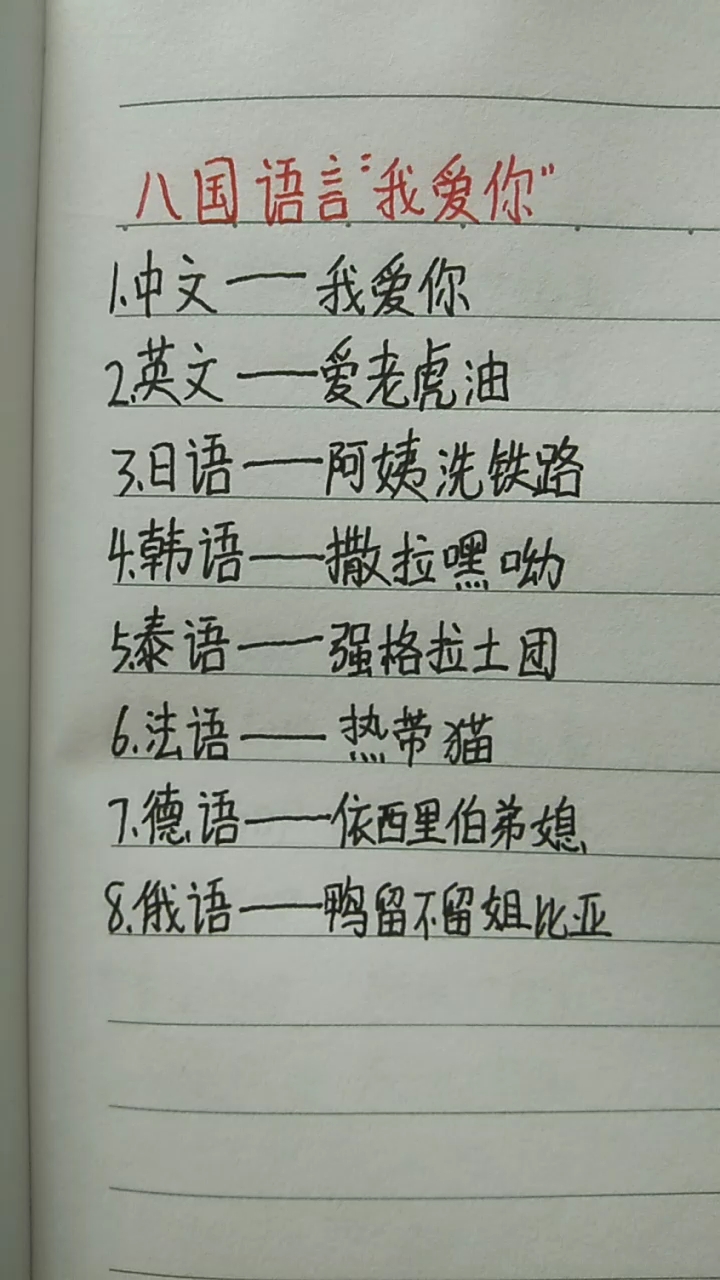 八国语言“我爱你”
1.中文——我爱你
2.英文——爱老虎油
3.日语——阿姨洗铁路
4.韩语——撒拉嘿呦
5.泰语——强格拉土团
6.法语——热带猫
7.德语——依西里伯弟媳
8.俄语——鸭留不留姐比亚